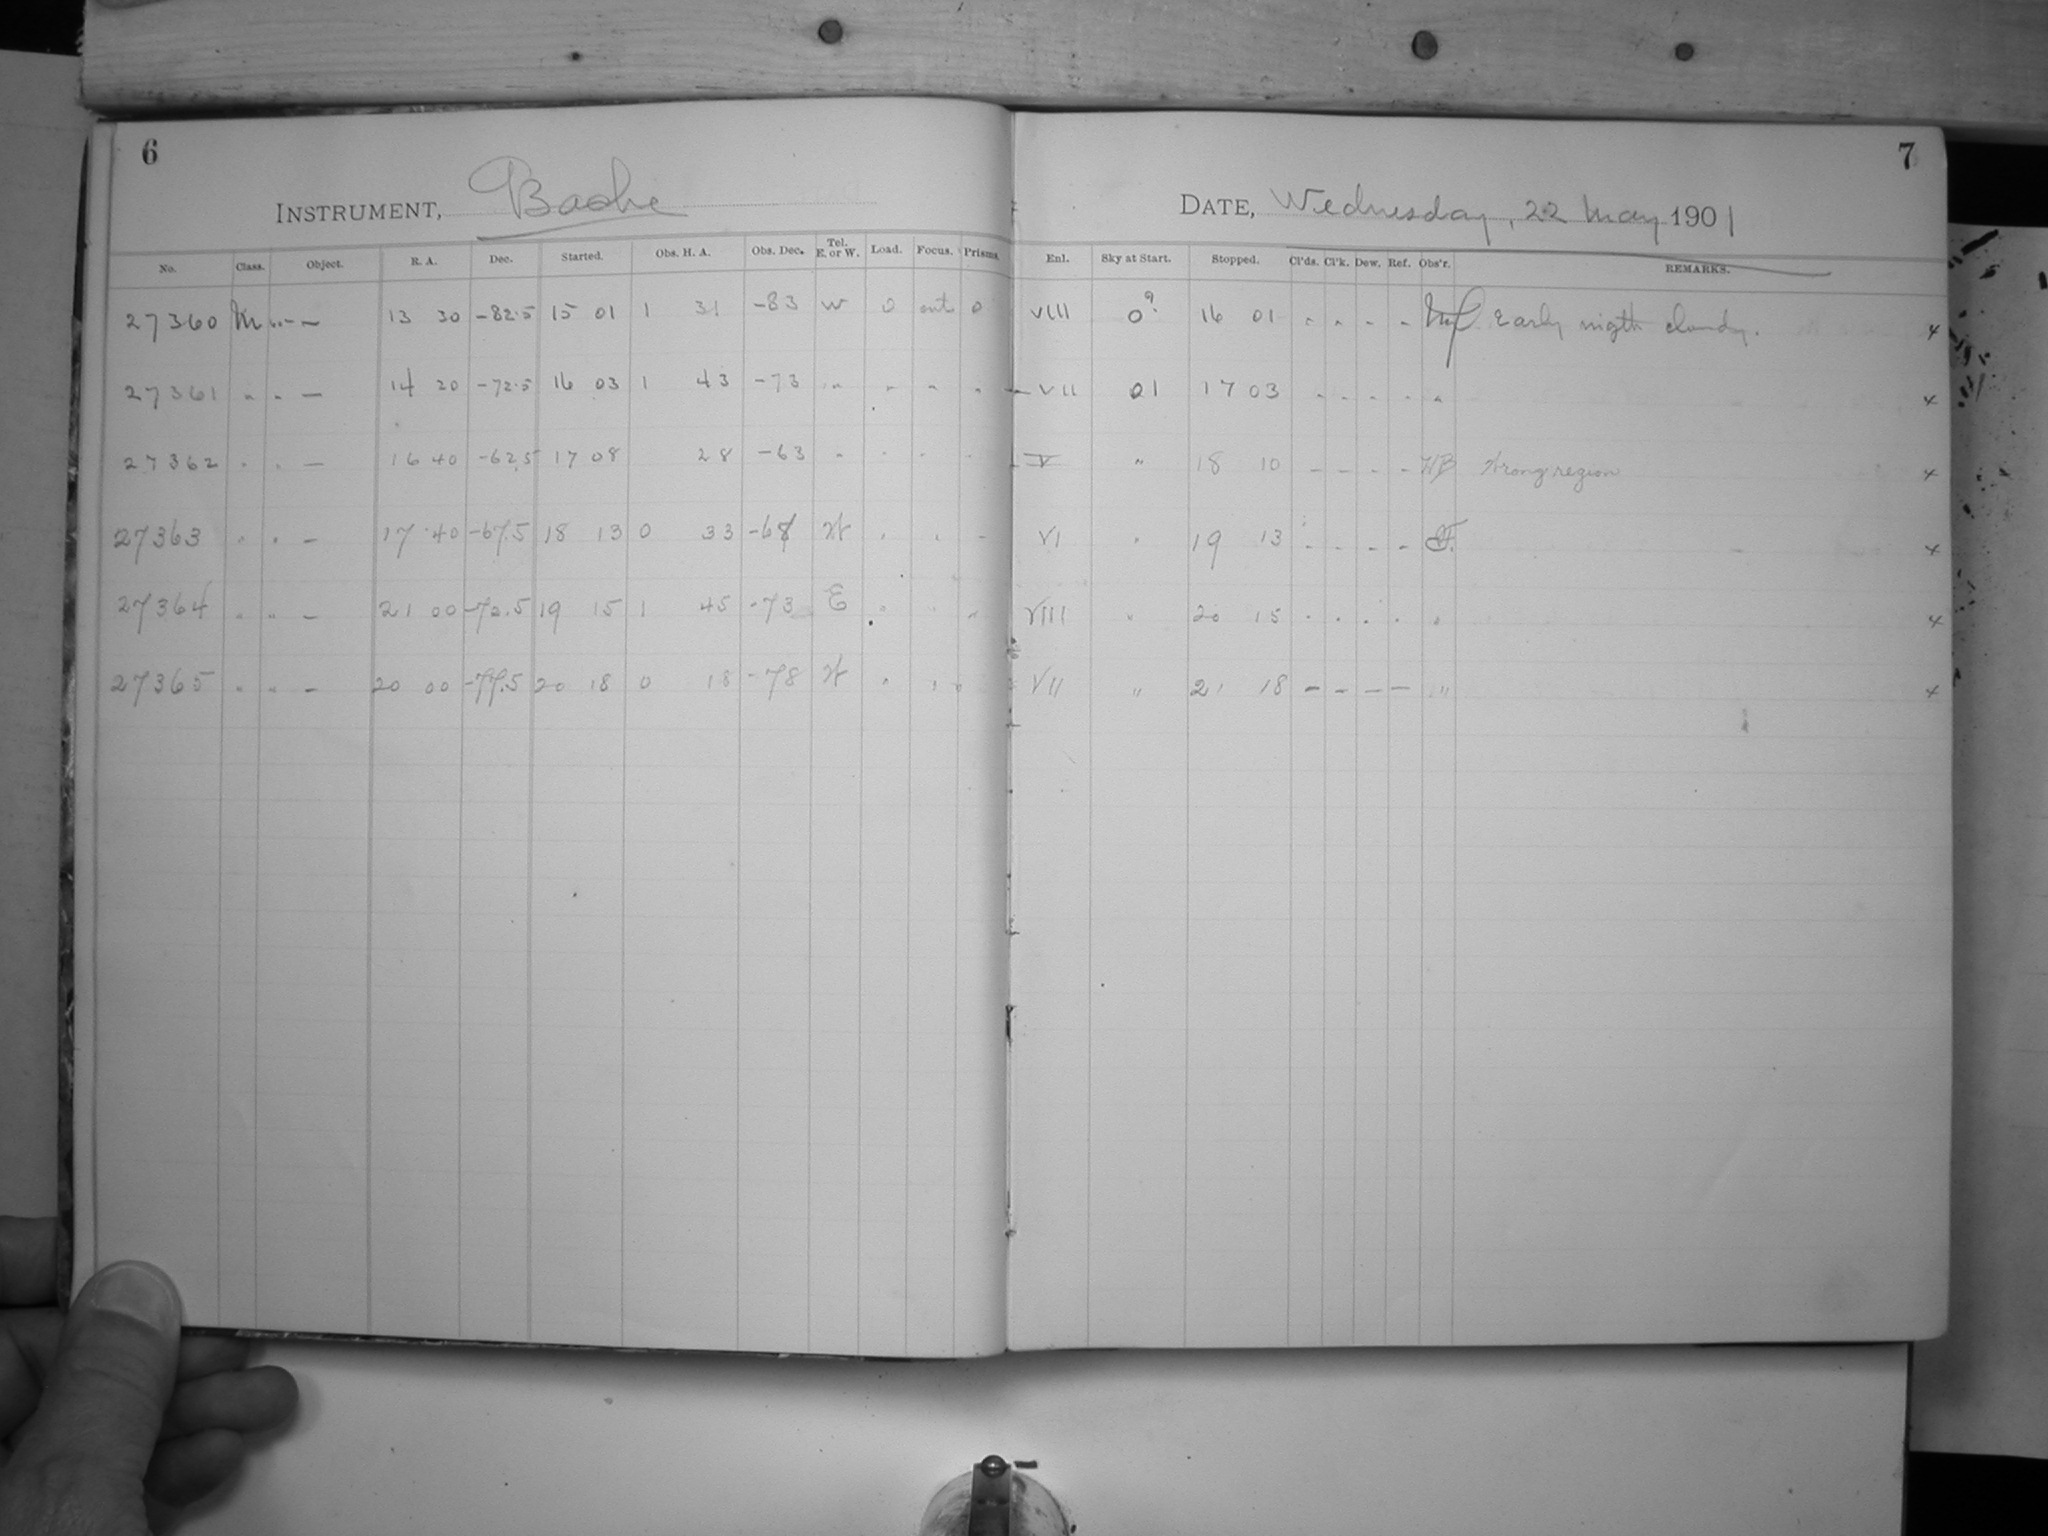 6
INSTRUMENT, Bache
No. Class. Object. R. A. Dec. Started. Obs. H. A. Obs. Dec. Tel. E. or W. Load. Focus. Prisms.
27360 — 13 30 -82.5 15 01 1 31 -83 W 0 out 0
27361 " " — 14 20 -72.5 16 03 1 43 -73 " " " " "
27362 " " — 16 40 -62.5 17 08 28 -63 " " " " "
27363 " " — 17 40 -67.5 18 13 0 33 -68 W " " "
27364 " " — 21 00 -72.5 19 15 1 45 -73 E " " "
27365 " " — 20 00 -77.5 20 18 0 18 -78 W " " "
7
DATE, Wednesday, 22 May 1901
Enl. Sky at Start. Stopped. Cl'ds. Cl'k. Dew. Ref. Obs'r. REMARKS.
VIII 0? 16 01 - - - - Early nigth cloudy. x
VII 01 17 03 - - - - " x
V " 18 10 - - - - Wrong region x
VI " 19 13 - - - - x
VIII " 20 15 " " " " " x
VII " 21 18 - - - - " x